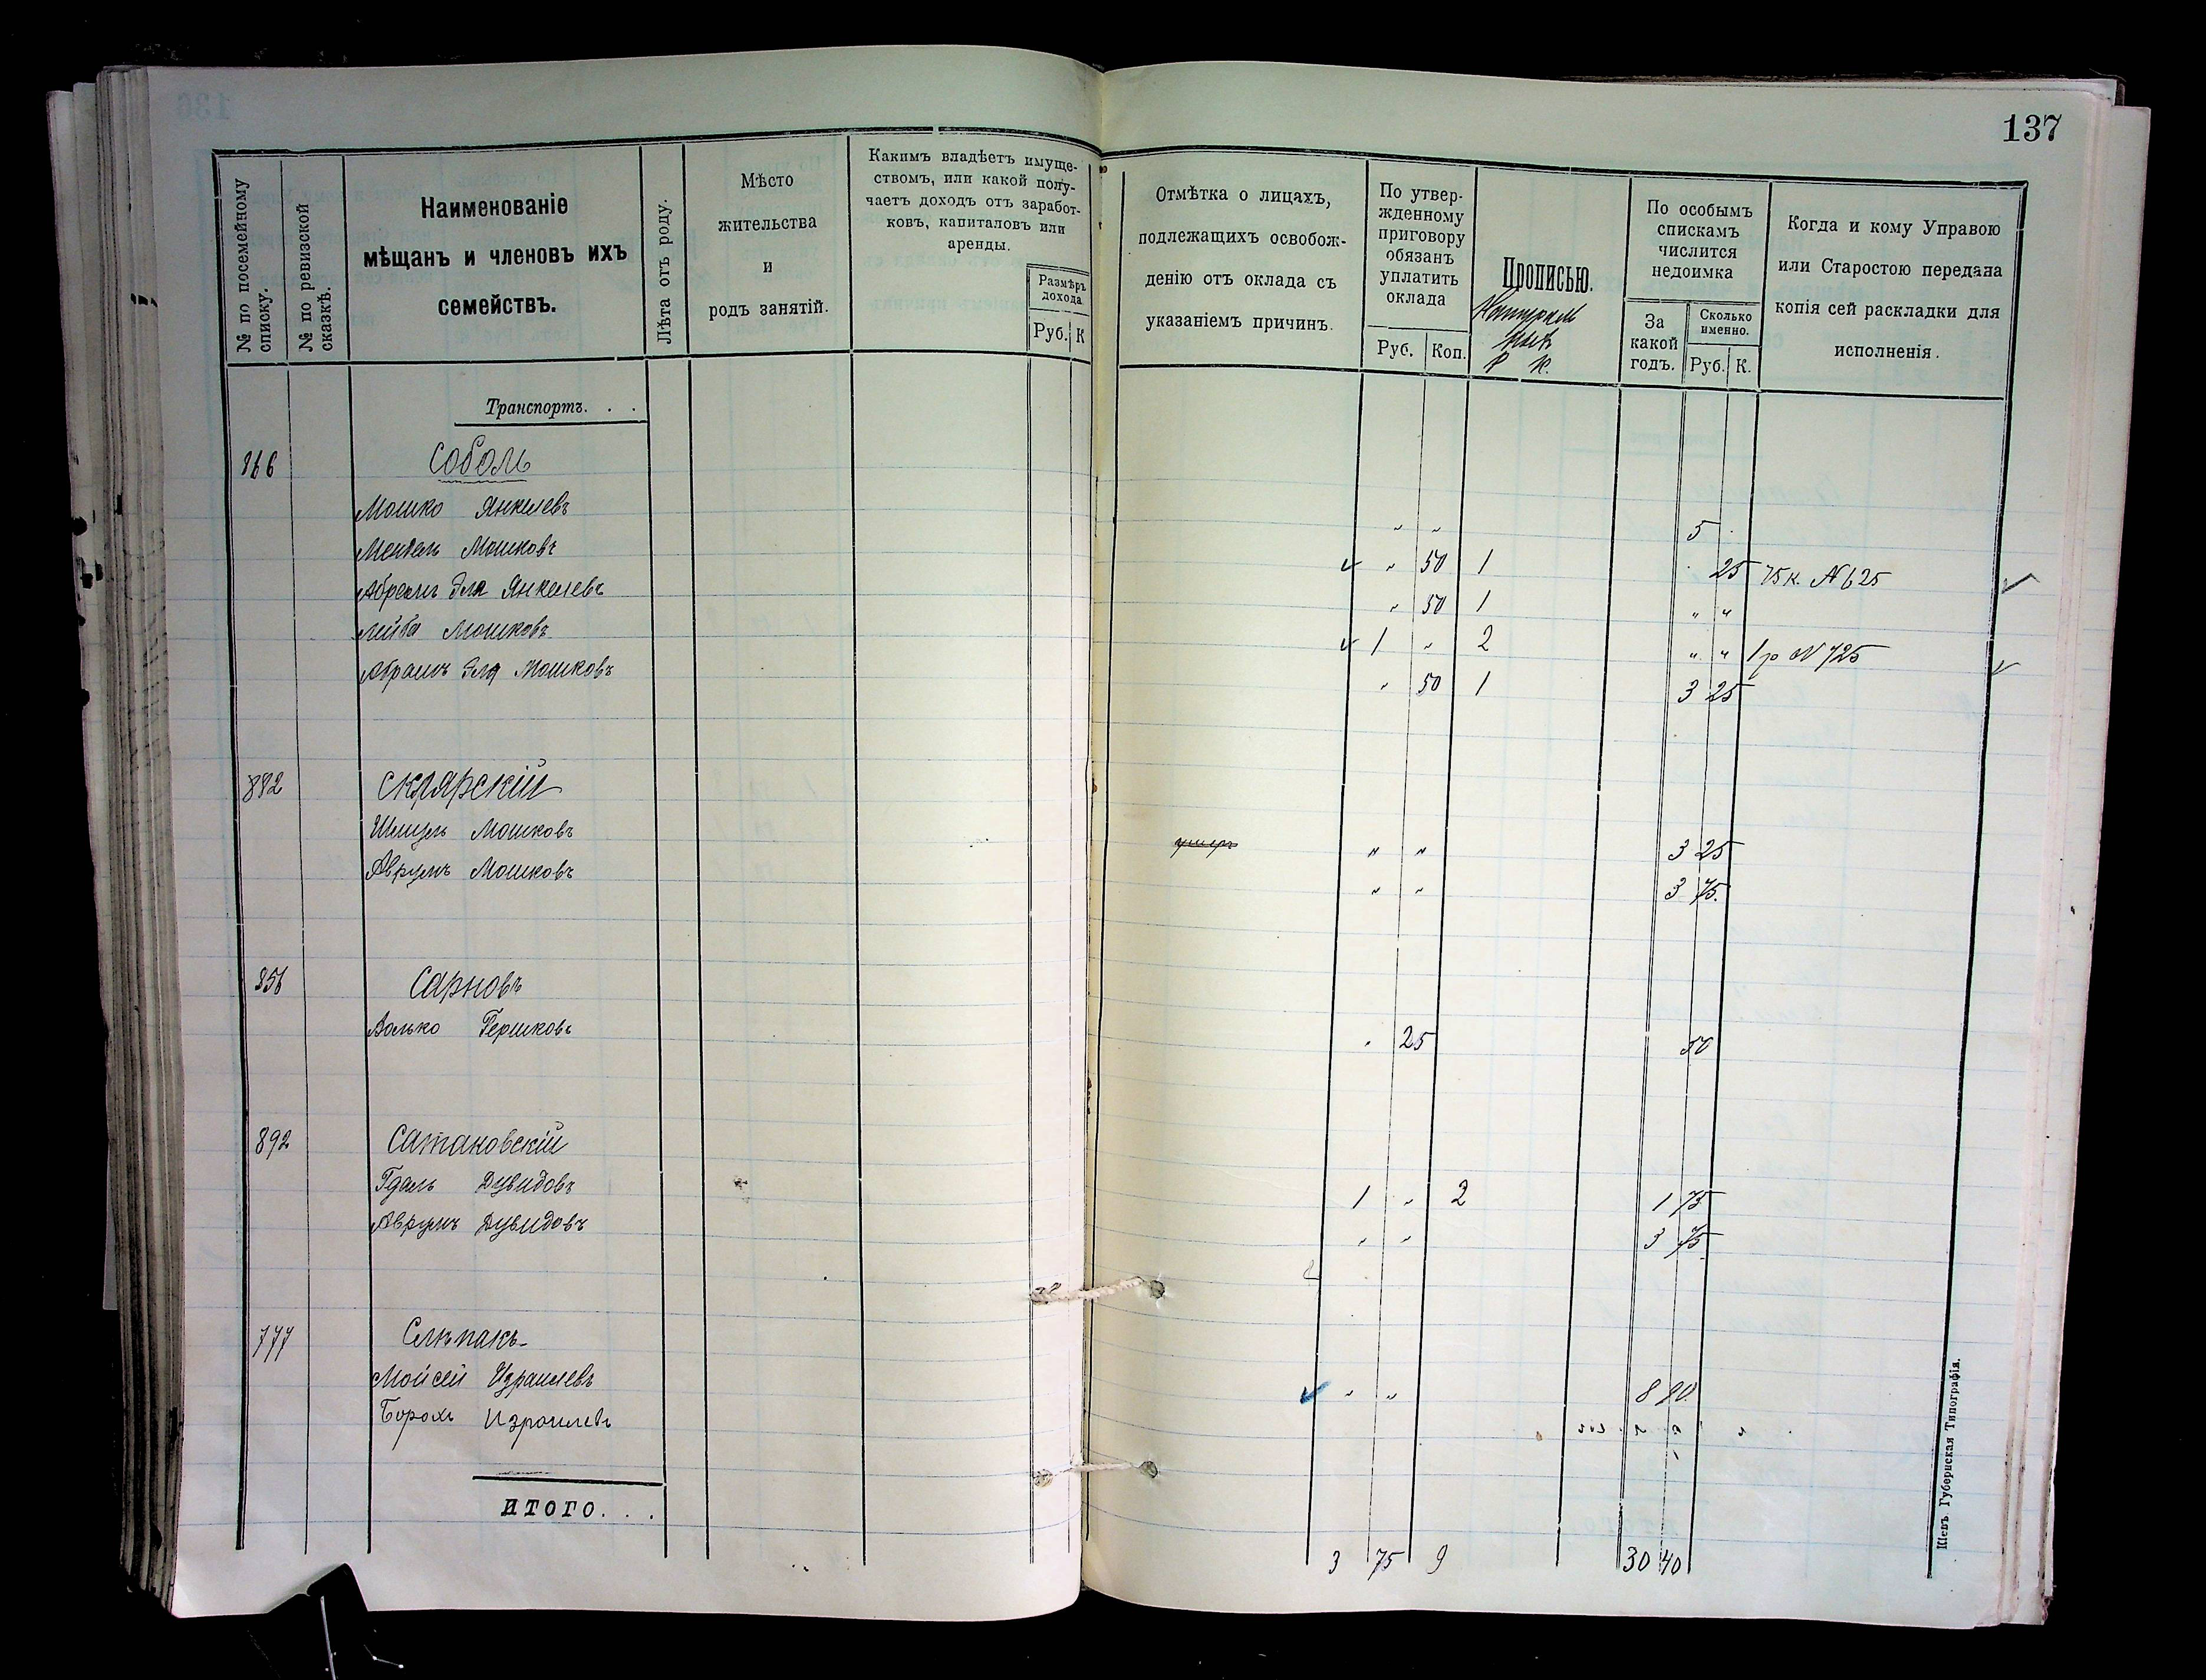 137
№ по посемейному списку.
№ по ревизской сказкѣ.
Наименованіе
мѣщанъ и членовъ ихъ
семействъ.
Лѣта отъ роду.
Мѣсто
жительства
и
родъ занятій.
Какимъ владѣетъ имуще-
ствомъ, или какой полу-
чаетъ доходъ отъ заработ-
ковъ, капиталовъ или
аренды.
Размѣръ
дохода
Руб. К
Отмѣтка о лицахъ,
подлежащихъ освобож-
денію отъ оклада съ
указаніемъ причинъ.
По утвер-
жденному
приговору
обязанъ
уплатить
оклада
Руб. Коп.
Прописью.
Р К.
По особымъ
спискамъ
числится
недоимка
За
какой
годъ.
Сколько
именно.
Руб. К.
Когда и кому Управою
или Старостою передана
копія сей раскладки для
исполненія.
Транспортъ. . .
866 Соболь
Мошко Янкелевъ " " 5
Мендель Мошковъ " 50 1 25 75 к. № 625
Абрамъ Эля Янкелевъ " 50 1 " "
Лейба Мошковъ 1 " 2 " " 1 р № 725
Абрамъ Эля Мошковъ " 50 1 3 25
882 Склярскій
Шмуль Мошковъ умеръ " " 3 25
Аврумъ Мошковъ " " 3 75.
856 Сарновъ
Волько Гершковъ " 25 50
892 Сатановскій
Гдаль Дувидовъ 1 " 2 1 75
Аврумъ Дувидовъ " " 3 75
777 Слѣпакъ
Мойсей Израилевъ " " 8 90
Борохъ Израилевъ
ИТОГО. . .
3 75 9 30 40
Кіевъ. Губернская Типографія.